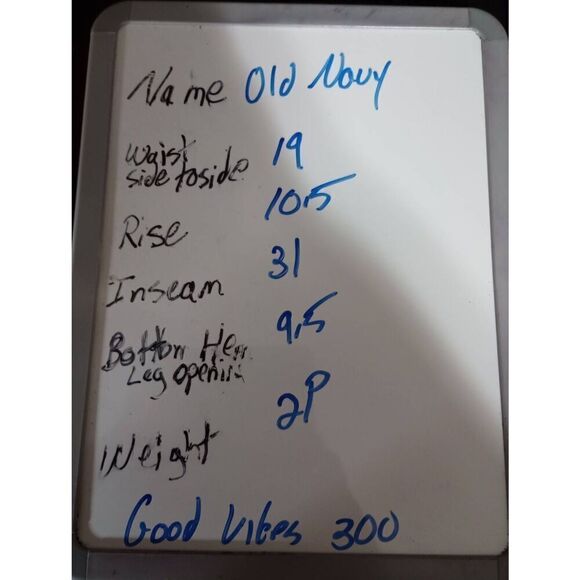 Name Old Navy
Waist 19
side to side
10.5
Rise
31
Inseam
9.5
Bottom Hem
Leg opening
2P
Weight
Good Vibes 300